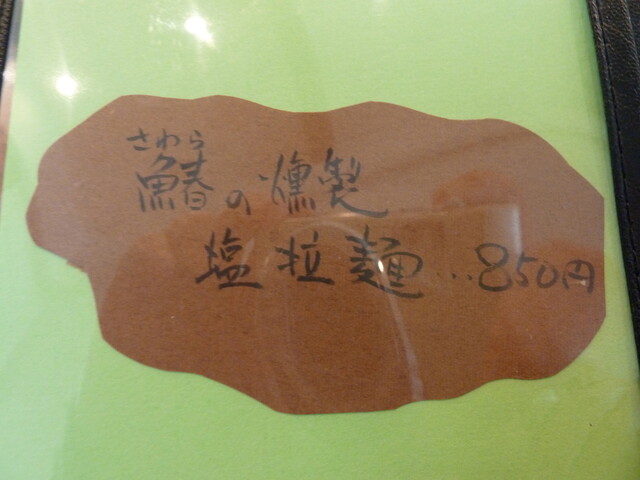 さわら
鰆の燻製
塩拉麺…850円